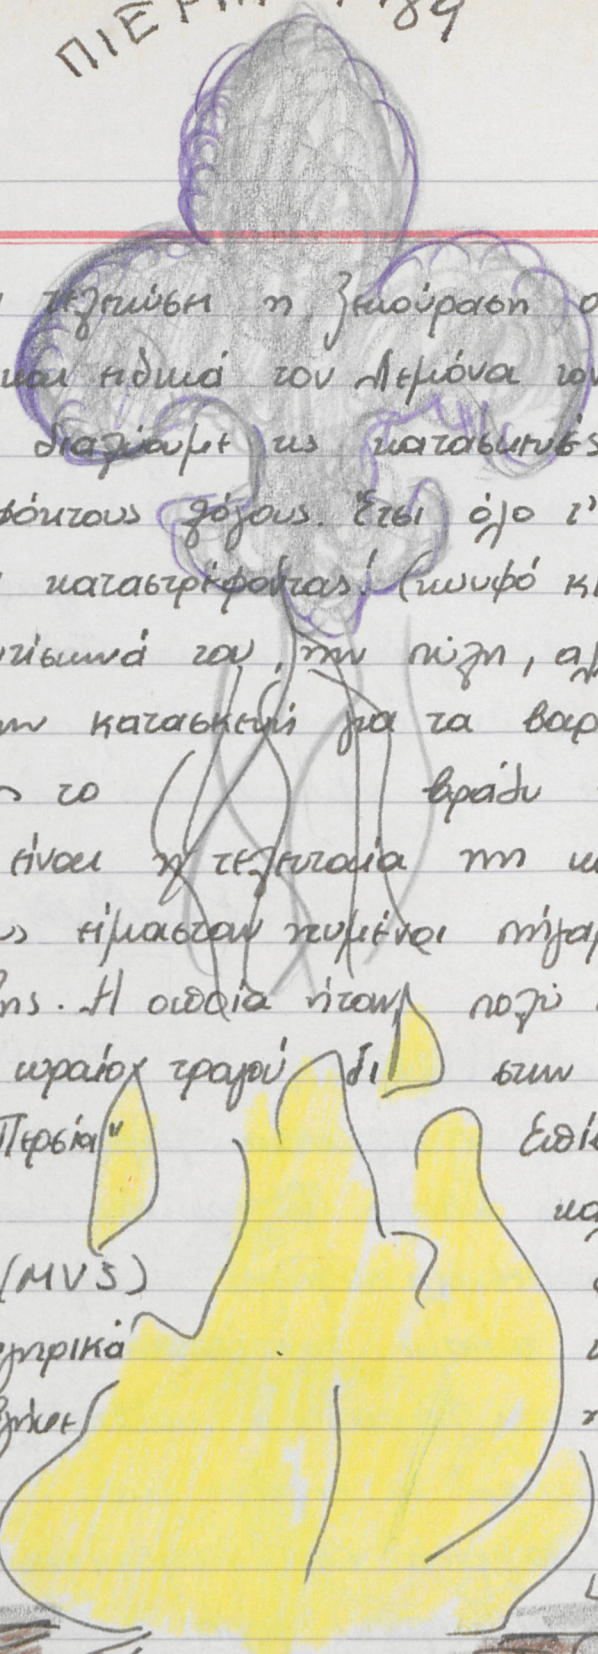 ΠΙΕΡ 89
τελειώσει η ξεκούραση
και ειδικά τον Λεμόνα τον
διαλύουμε τις κατασκευές
λόγους. Έτσι όλο τ'
καταστρέφοντας! (κουφό κι
του, την πύλη,
κατασκευή για τα βαρ
το βράδυ
είναι η τελευταία της
είμασταν ντυμένοι πήγαμ
Η οποία ήταν πολύ
ωραίο τραγούδι στην
Περσία"
(MVS)